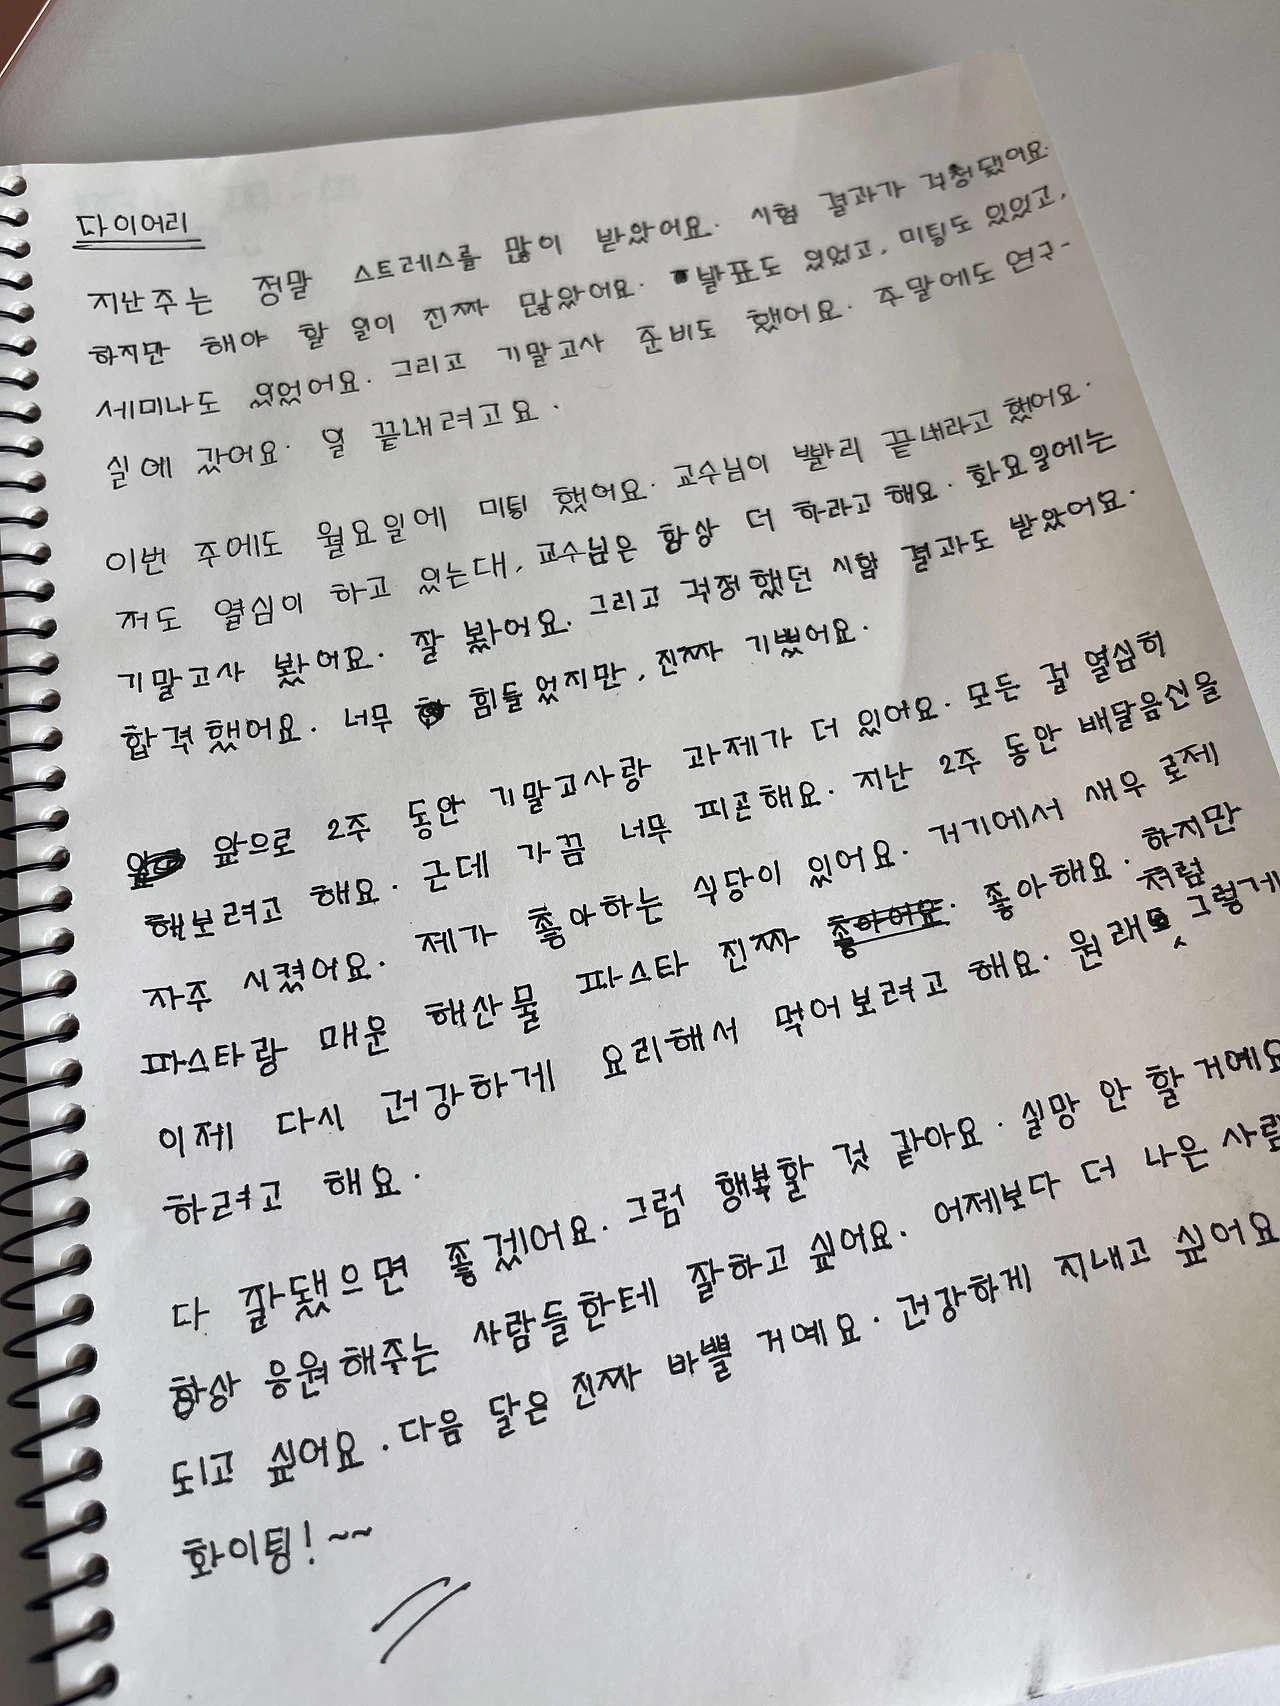 다이어리
지난주는 정말 스트레스를 많이 받았어요. 시험 결과가 걱정됐어요.
하지만 해야 할 일이 진짜 많았어요. 발표도 있었고, 미팅도 있었고,
세미나도 있었어요. 그리고 기말고사 준비도 했어요. 주말에도 연구-
실에 갔어요. 일 끝내려고요.
이번 주에도 월요일에 미팅 했어요. 교수님이 빨리 끝내라고 했어요.
저도 열심이 하고 있는대, 교수님은 항상 더 하라고 해요. 화요일에는
기말고사 봤어요. 잘 봤어요. 그리고 걱정했던 시험 결과도 받았어요.
합격했어요. 너무 힘들었지만, 진짜 기뻤어요.
앞으로 2주 동안 기말고사랑 과제가 더 있어요. 모든 걸 열심히
해보려고 해요. 근데 가끔 너무 피곤해요. 지난 2주 동안 배달음신을
자주 시켰어요. 제가 좋아하는 식당이 있어요. 거기에서 새우 로제
파스타랑 매운 해산물 파스타 진짜 좋아어요. 좋아해요. 하지만
이제 다시 건강하게 요리해서 먹어보려고 해요. 원래처럼 그렇게
하려고 해요.
다 잘됐으면 좋겠어요. 그럼 행복할 것 같아요. 실망 안 할 거예요
항상 응원해주는 사람들한테 잘하고 싶어요. 어제보다 더 나은 사람
되고 싶어요. 다음 달은 진짜 바쁠 거예요. 건강하게 지내고 싶어요
화이팅! ~~